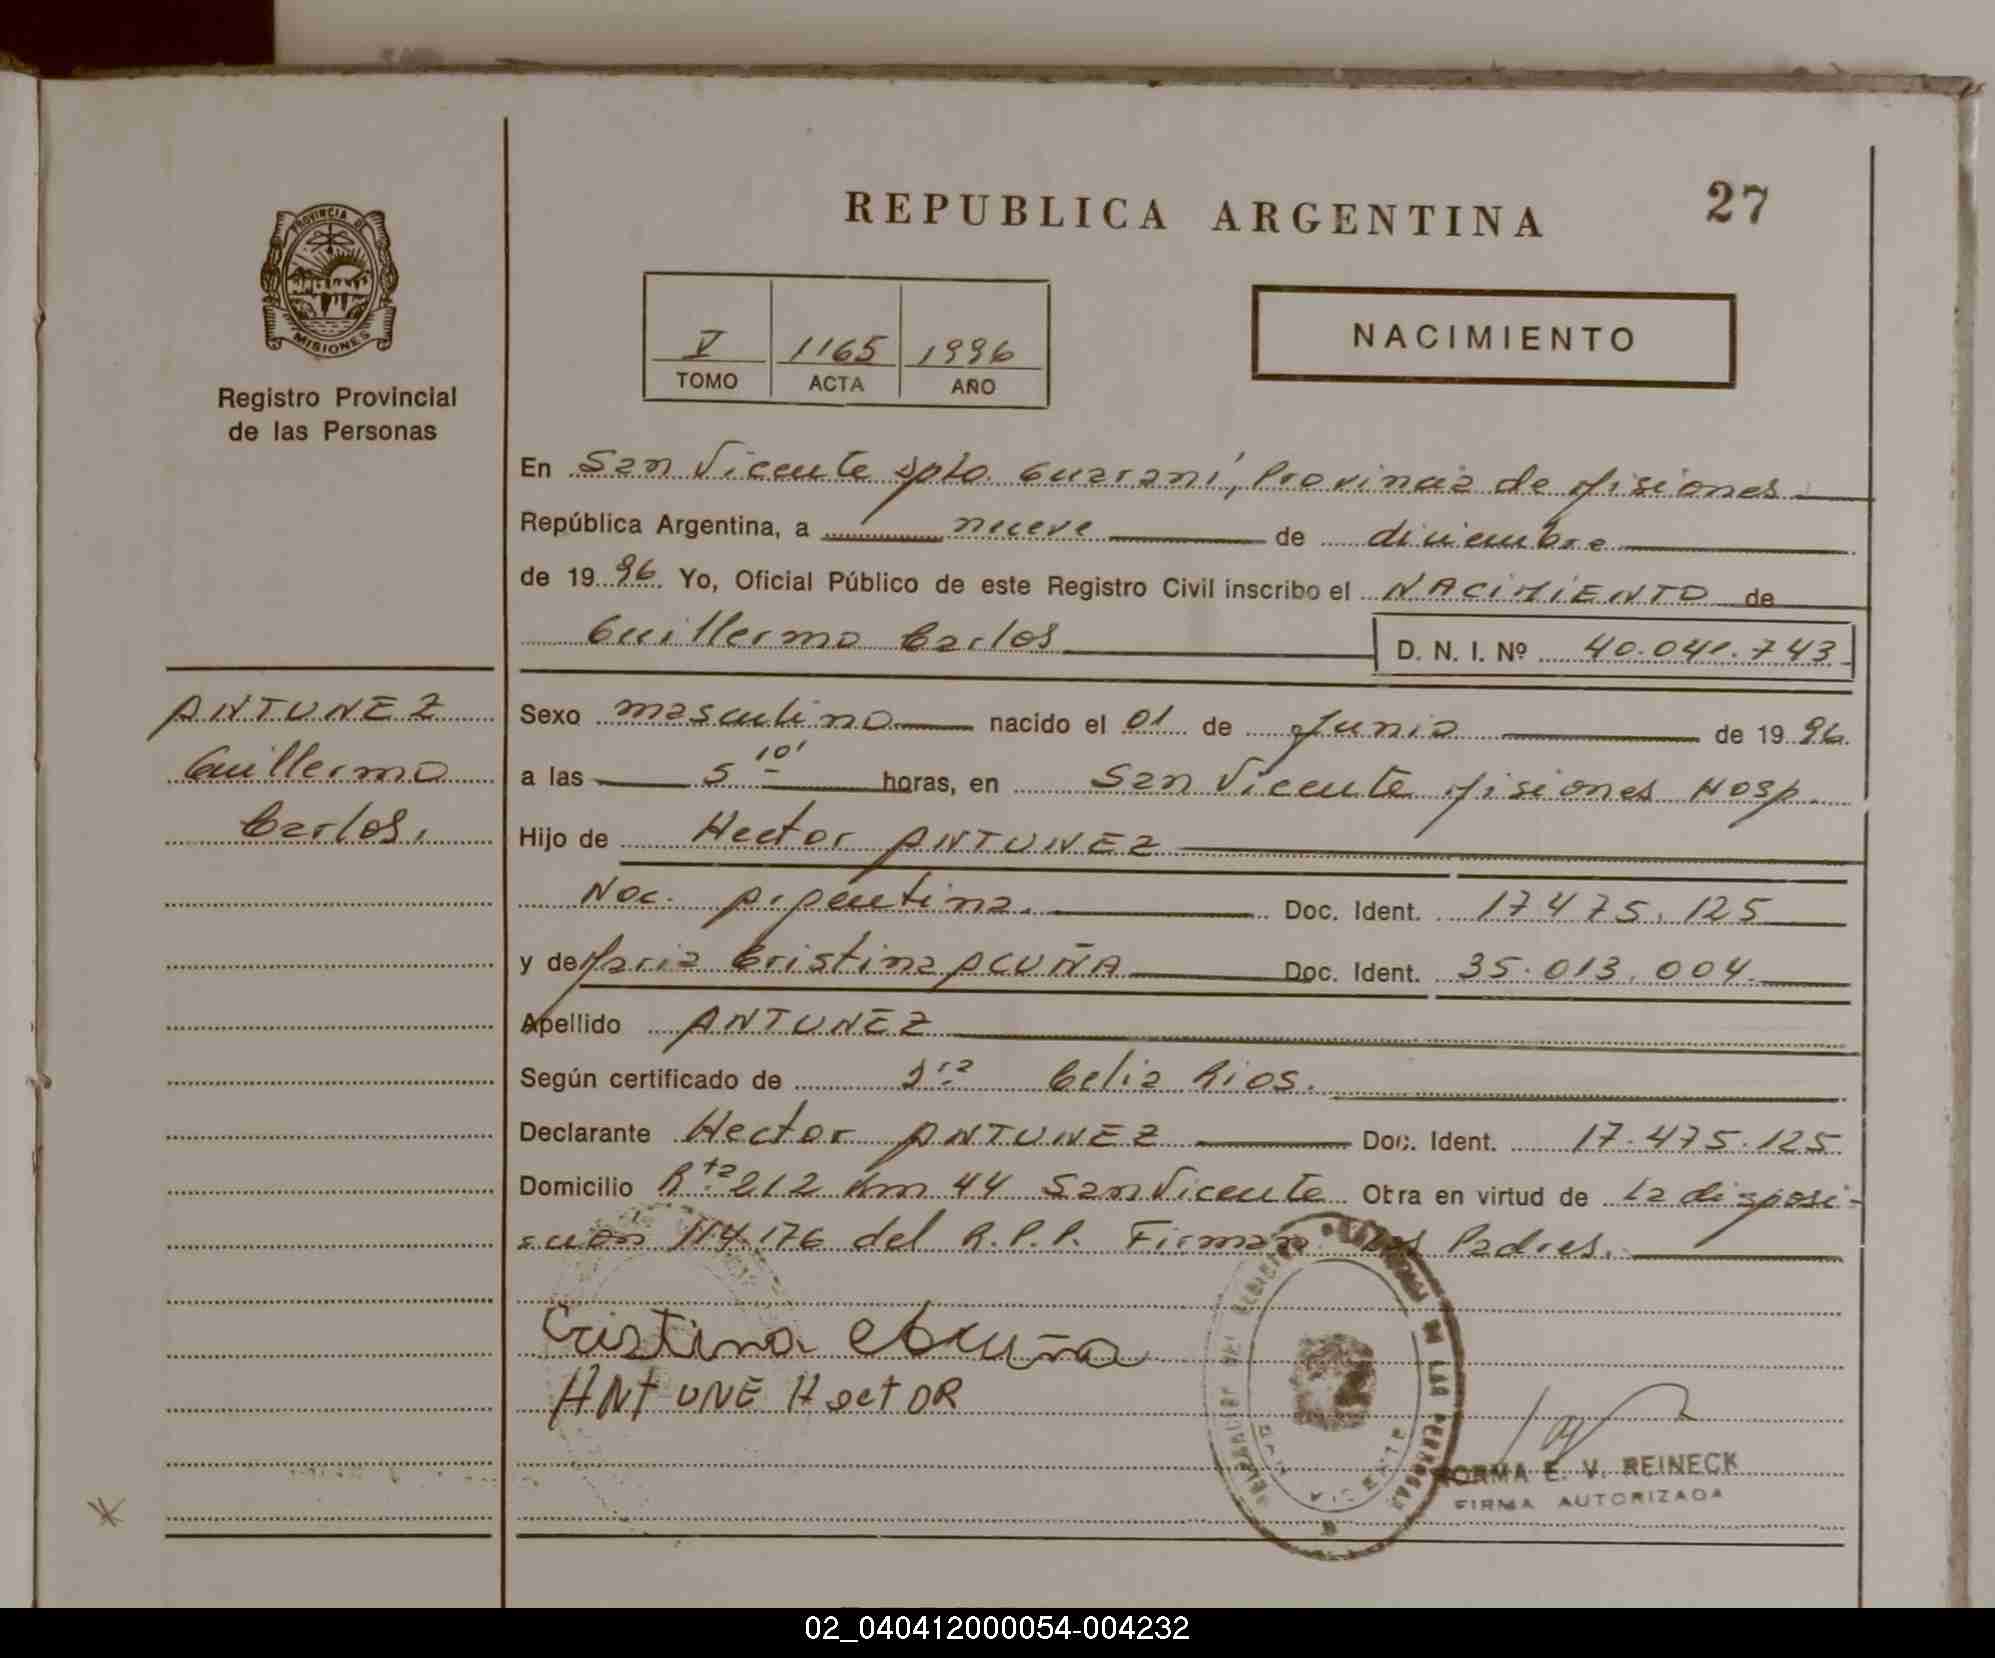 REPUBLICA ARGENTINA
27
PROVINCIA DE
MISIONES
Registro Provincial
de las Personas
V 1165 1996
TOMO ACTA AÑO
NACIMIENTO
En San Vicente Dpto. Guaraní, Provincia de Misiones
República Argentina, a nueve de diciembre
de 1996 Yo, Oficial Público de este Registro Civil inscribo el NACIMIENTO de
Guillermo Carlos D. N. I. Nº 40.041.743
ANTUNEZ
Guillermo
Carlos.
Sexo masculino nacido el 01 de Junio de 1996
a las 5 10' horas, en San Vicente Misiones Hosp.
Hijo de Hector ANTUNEZ
Nac. Argentina. Doc. Ident. 17475.125
y de Maria Cristina ACUÑA Doc. Ident. 35.013.004.
Apellido ANTUNEZ
Según certificado de Dra Celia Rios.
Declarante Hector ANTUNEZ Doc. Ident. 17.475.125
Domicilio Rta 212 Km 44 San Vicente Obra en virtud de la disposi-
del R.P.P. Firman los Padres.
Cristina Acuña
ANTUNE HectOR
DE LAS PERSONAS
NORMA E. V. REINECK
FIRMA AUTORIZADA
02_040412000054-004232